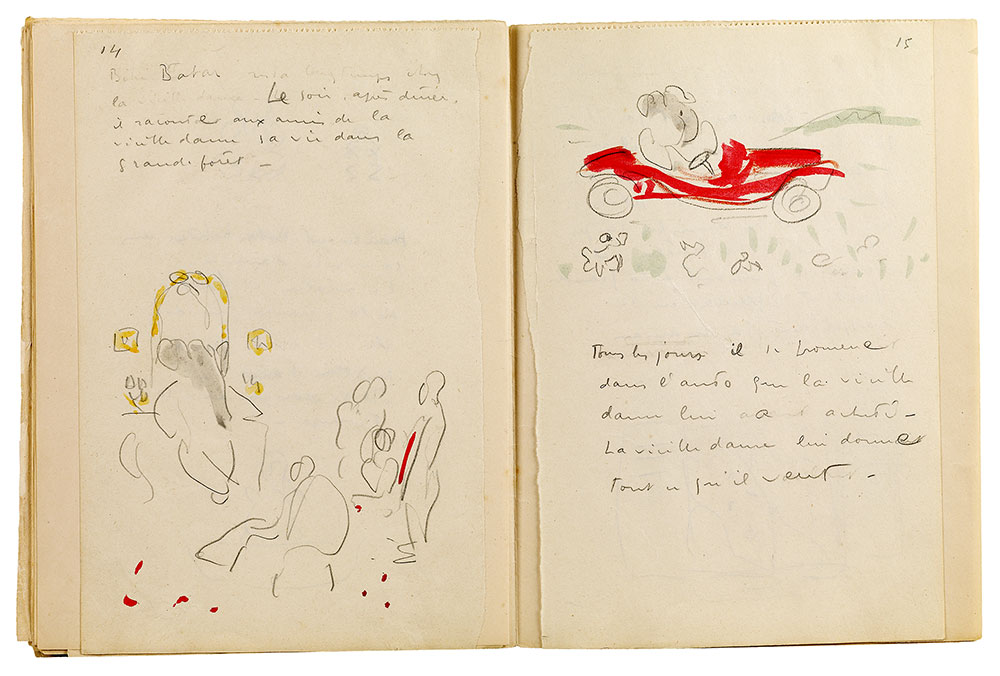 14
Bébé Babar resta longtemps chez
la vieille dame. Le soir, après dîner,
il raconte aux amis de la
vieille dame sa vie dans la
grande forêt –
15
Tous les jours il se promene
dans l'auto que la vieille
dame lui a acheté –
La vieille dame lui donne
tout ce qu'il veut. –